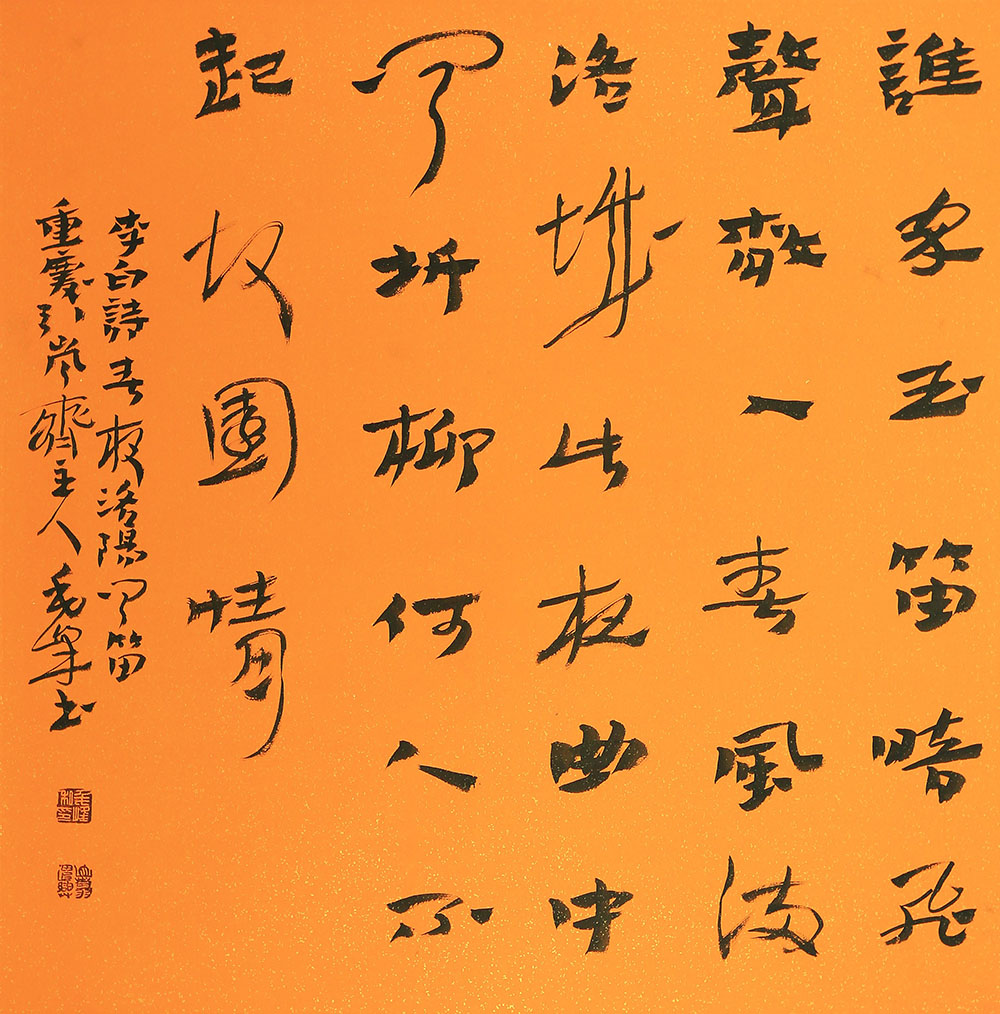 誰家玉笛暗飛
聲散入春風滿
洛城此夜曲中
聞折柳何人不
起故園情
李白詩春夜洛陽聞笛
重慶齋主人毛峰書